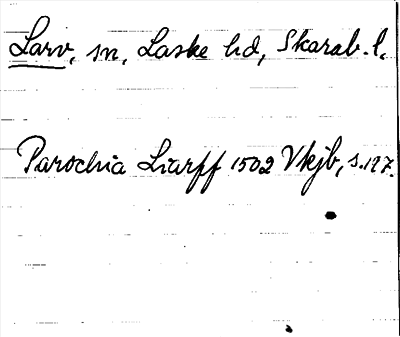 Larv, sn, Laske hd, Skarab. l.
Parochia Liarff 1502 Vkjb, s. 127.